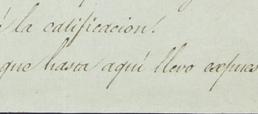 la calificacion!
que hasta aquí llevo expues